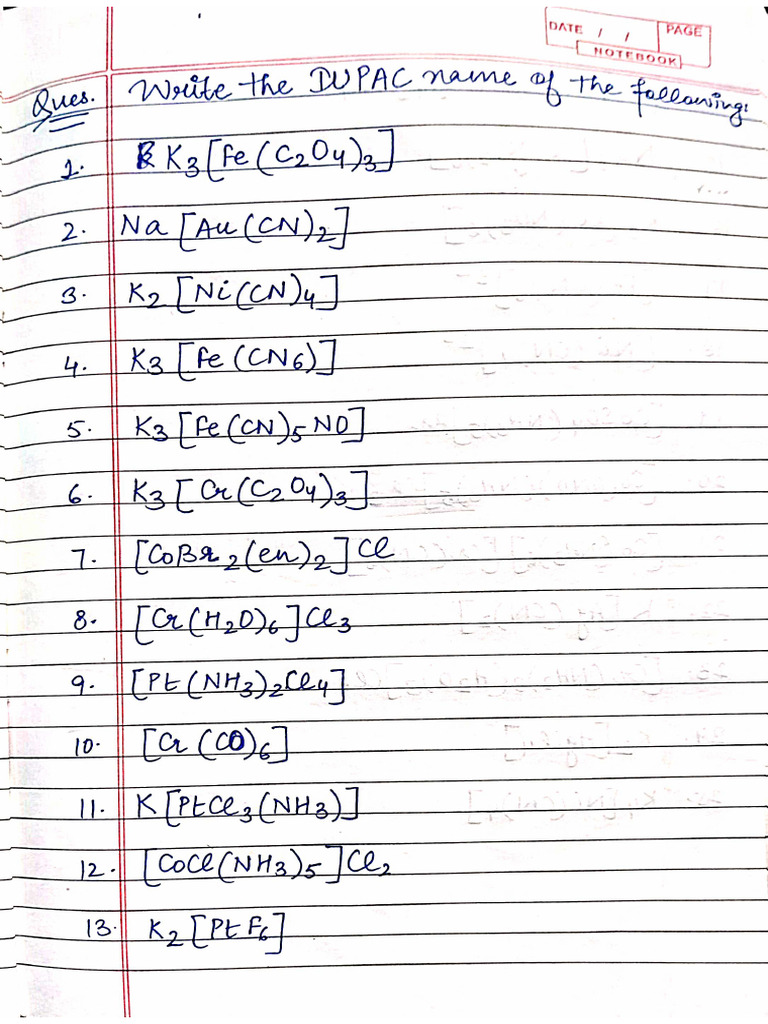 DATE / / PAGE
NOTEBOOK
Ques. Write the IUPAC name of the following:
1. K3[Fe(C2O4)3]
2. Na[Au(CN)2]
3. K2[Ni(CN)4]
4. K3[Fe(CN6)]
5. K3[Fe(CN)5NO]
6. K3[Cr(C2O4)3]
7. [CoBr2(en)2]Cl
8. [Cr(H2O)6]Cl3
9. [Pt(NH3)2Cl4]
10. [Cr(CO)6]
11. K[PtCl3(NH3)]
12. [CoCl(NH3)5]Cl2
13. K2[PtF6]